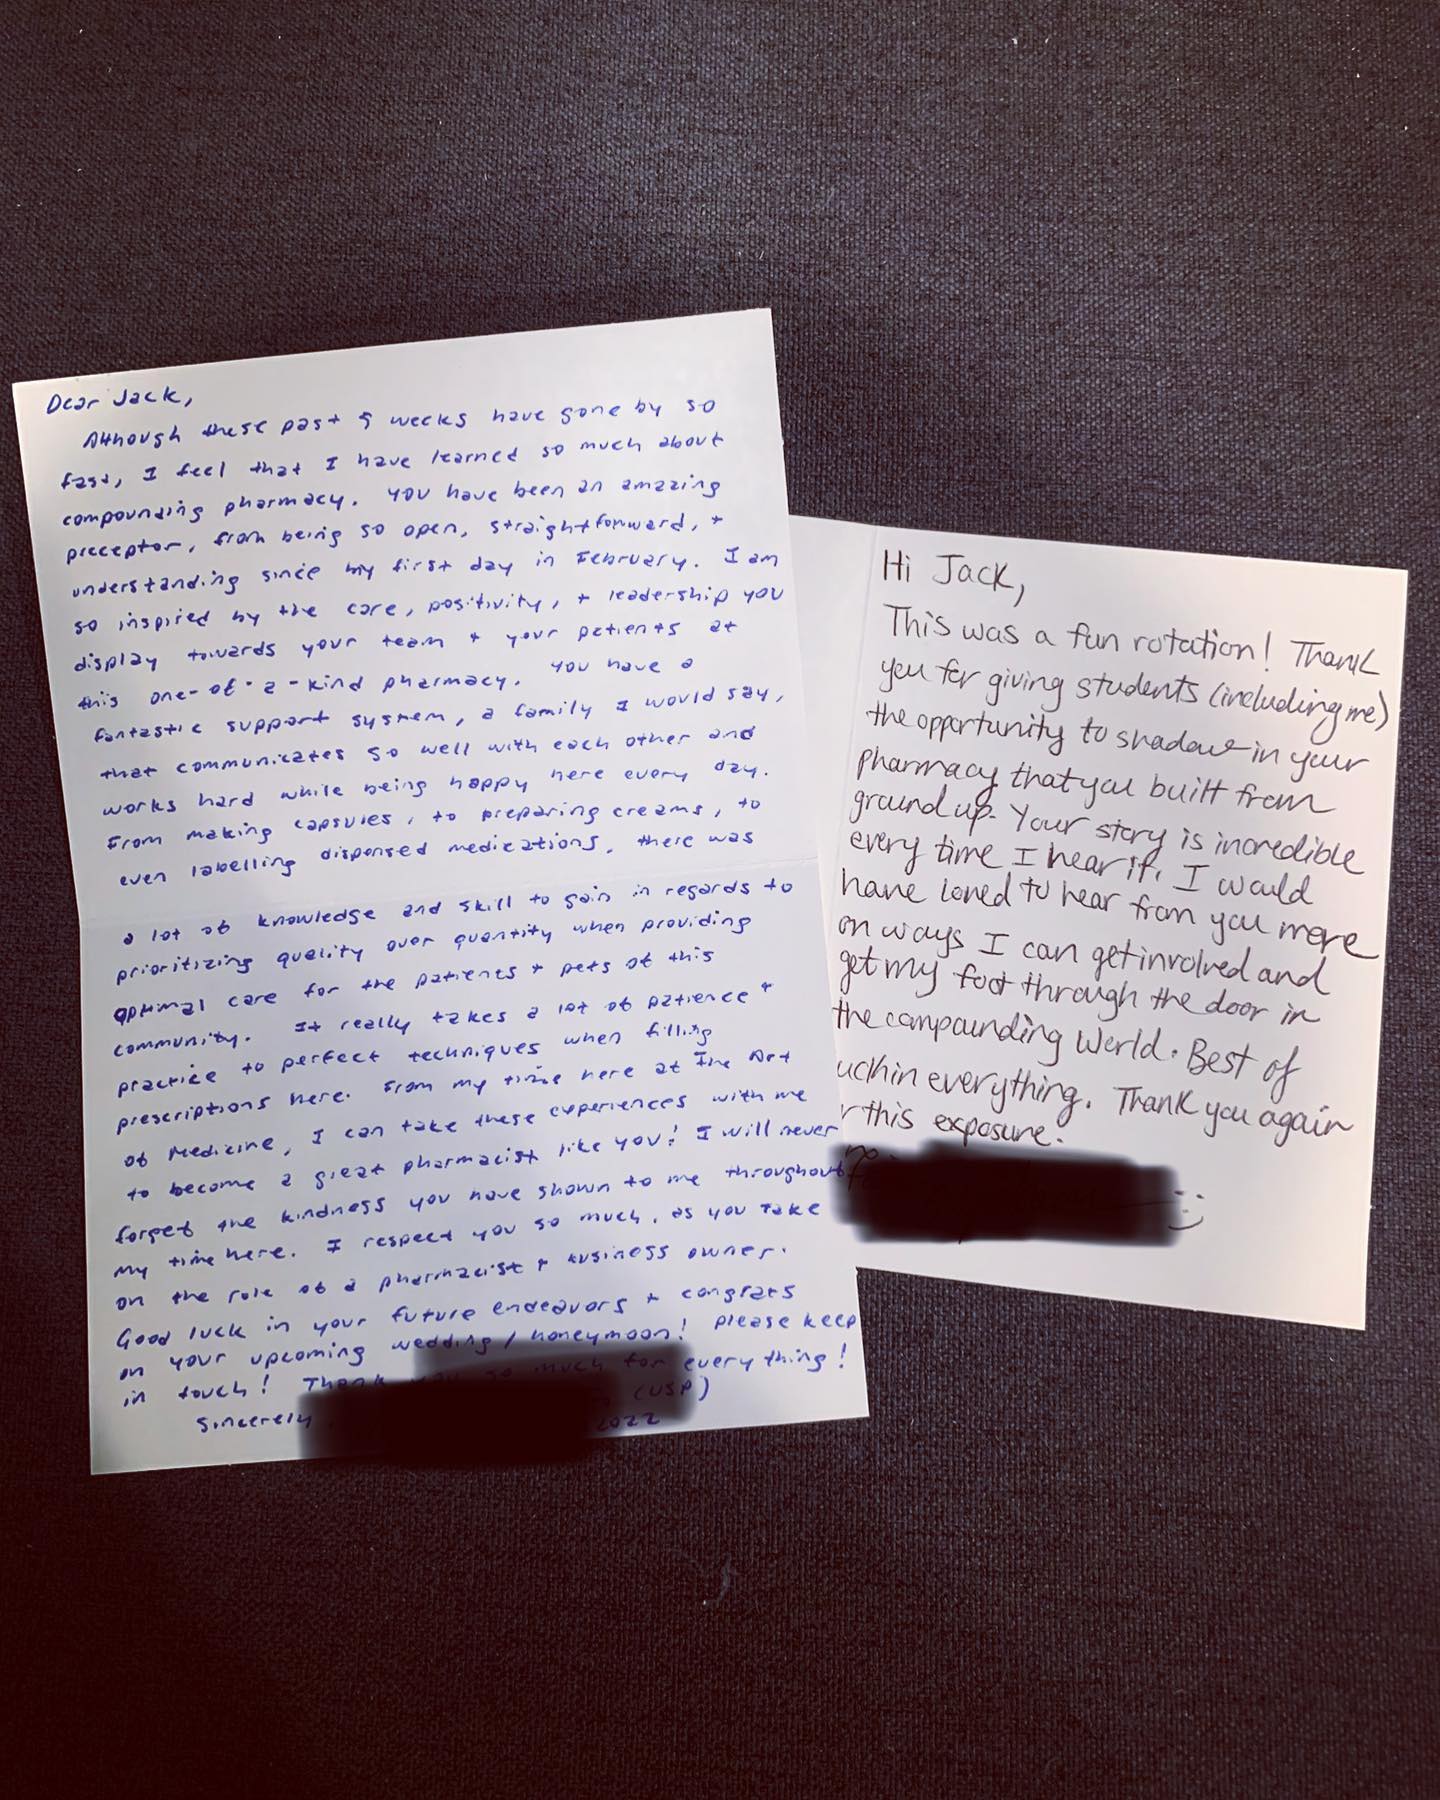 Dear Jack,
Although these past 5 weeks have gone by so
fast, I feel that I have learned so much about
compounding pharmacy. You have been an amazing
preceptor, from being so open, straightforward, +
understanding since my first day in February. I am
so inspired by the care, positivity, + leadership you
display towards your team + your patients at
this one-of-a-kind pharmacy. You have a
fantastic support system, a family I would say,
that communicates so well with each other and
works hard while being happy here every day.
From making capsules, to preparing creams, to
even labelling dispensed medications, there was
a lot of knowledge and skill to gain in regards to
prioritizing quality over quantity when providing
optimal care for the patients + pets of this
community. It really takes a lot of patience +
practice to perfect techniques when filling
prescriptions here. From my time here at The Art
of Medicine, I can take these experiences with me
to become a great pharmacist like you! I will never
forget the kindness you have shown to me throughout
my time here. I respect you so much, as you take
on the role of a pharmacist + business owner.
Good luck in your future endeavors + congrats
on your upcoming wedding/honeymoon! Please keep
in touch! Thank you so much for everything!
Sincerely, (USP)
2022
Hi Jack,
This was a fun rotation! Thank
you for giving students (including me)
the opportunity to shadow in your
pharmacy that you built from
ground up. Your story is incredible
every time I hear it. I would
have loved to hear from you more
on ways I can get involved and
get my foot through the door in
the compounding world. Best of
uck in everything. Thank you again
r this exposure.
:)